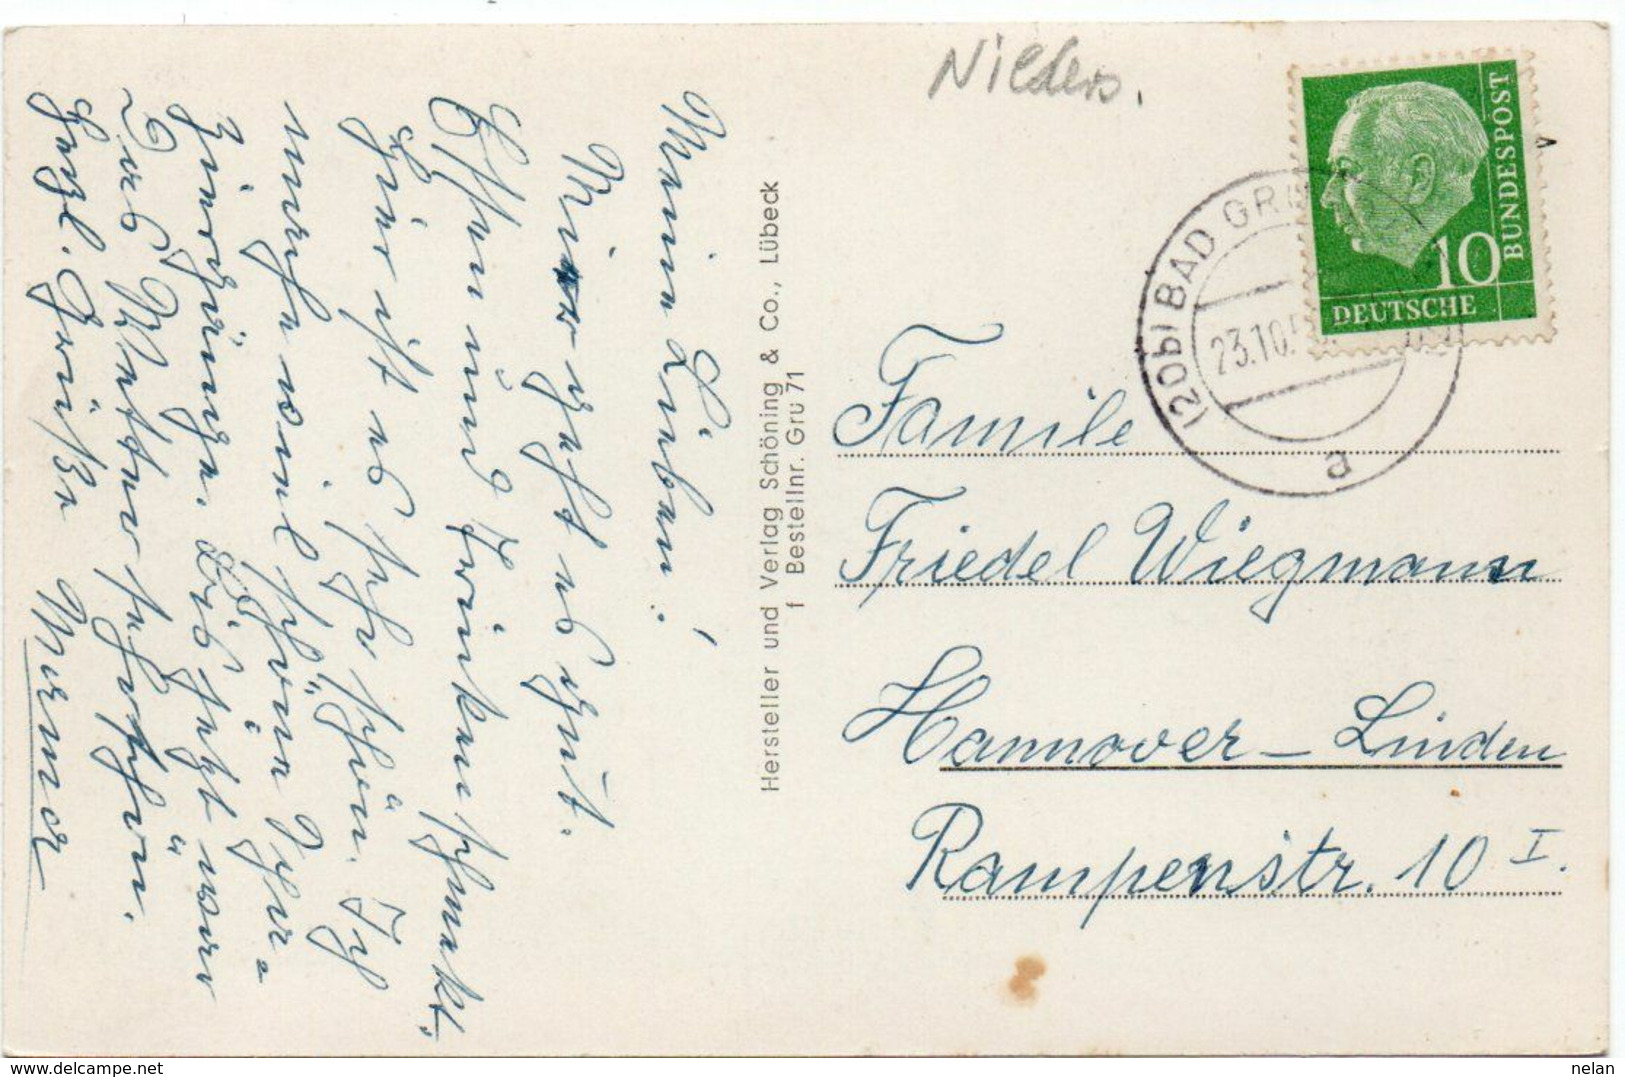 Meine Lieben!
Mir geht es gut.
Essen und Trinken schmekt.
Hier ist es sehr schön. Ich
mache viel schöne Spazier-
gänge. Bis jetzt war
das Wetter sehr schön.
Herzl. Grüße Werner
Hersteller und Verlag Schöning & Co., Lübeck
f Bestellnr. Gru 71
Nieders.
BUNDESPOST
10
DEUTSCHE
(20b) BAD GR
23.10.5
a
Familie
Friedel Wiegmann
Hannover - Linden
Rampenstr. 10 I.
delcampe.net
nelan